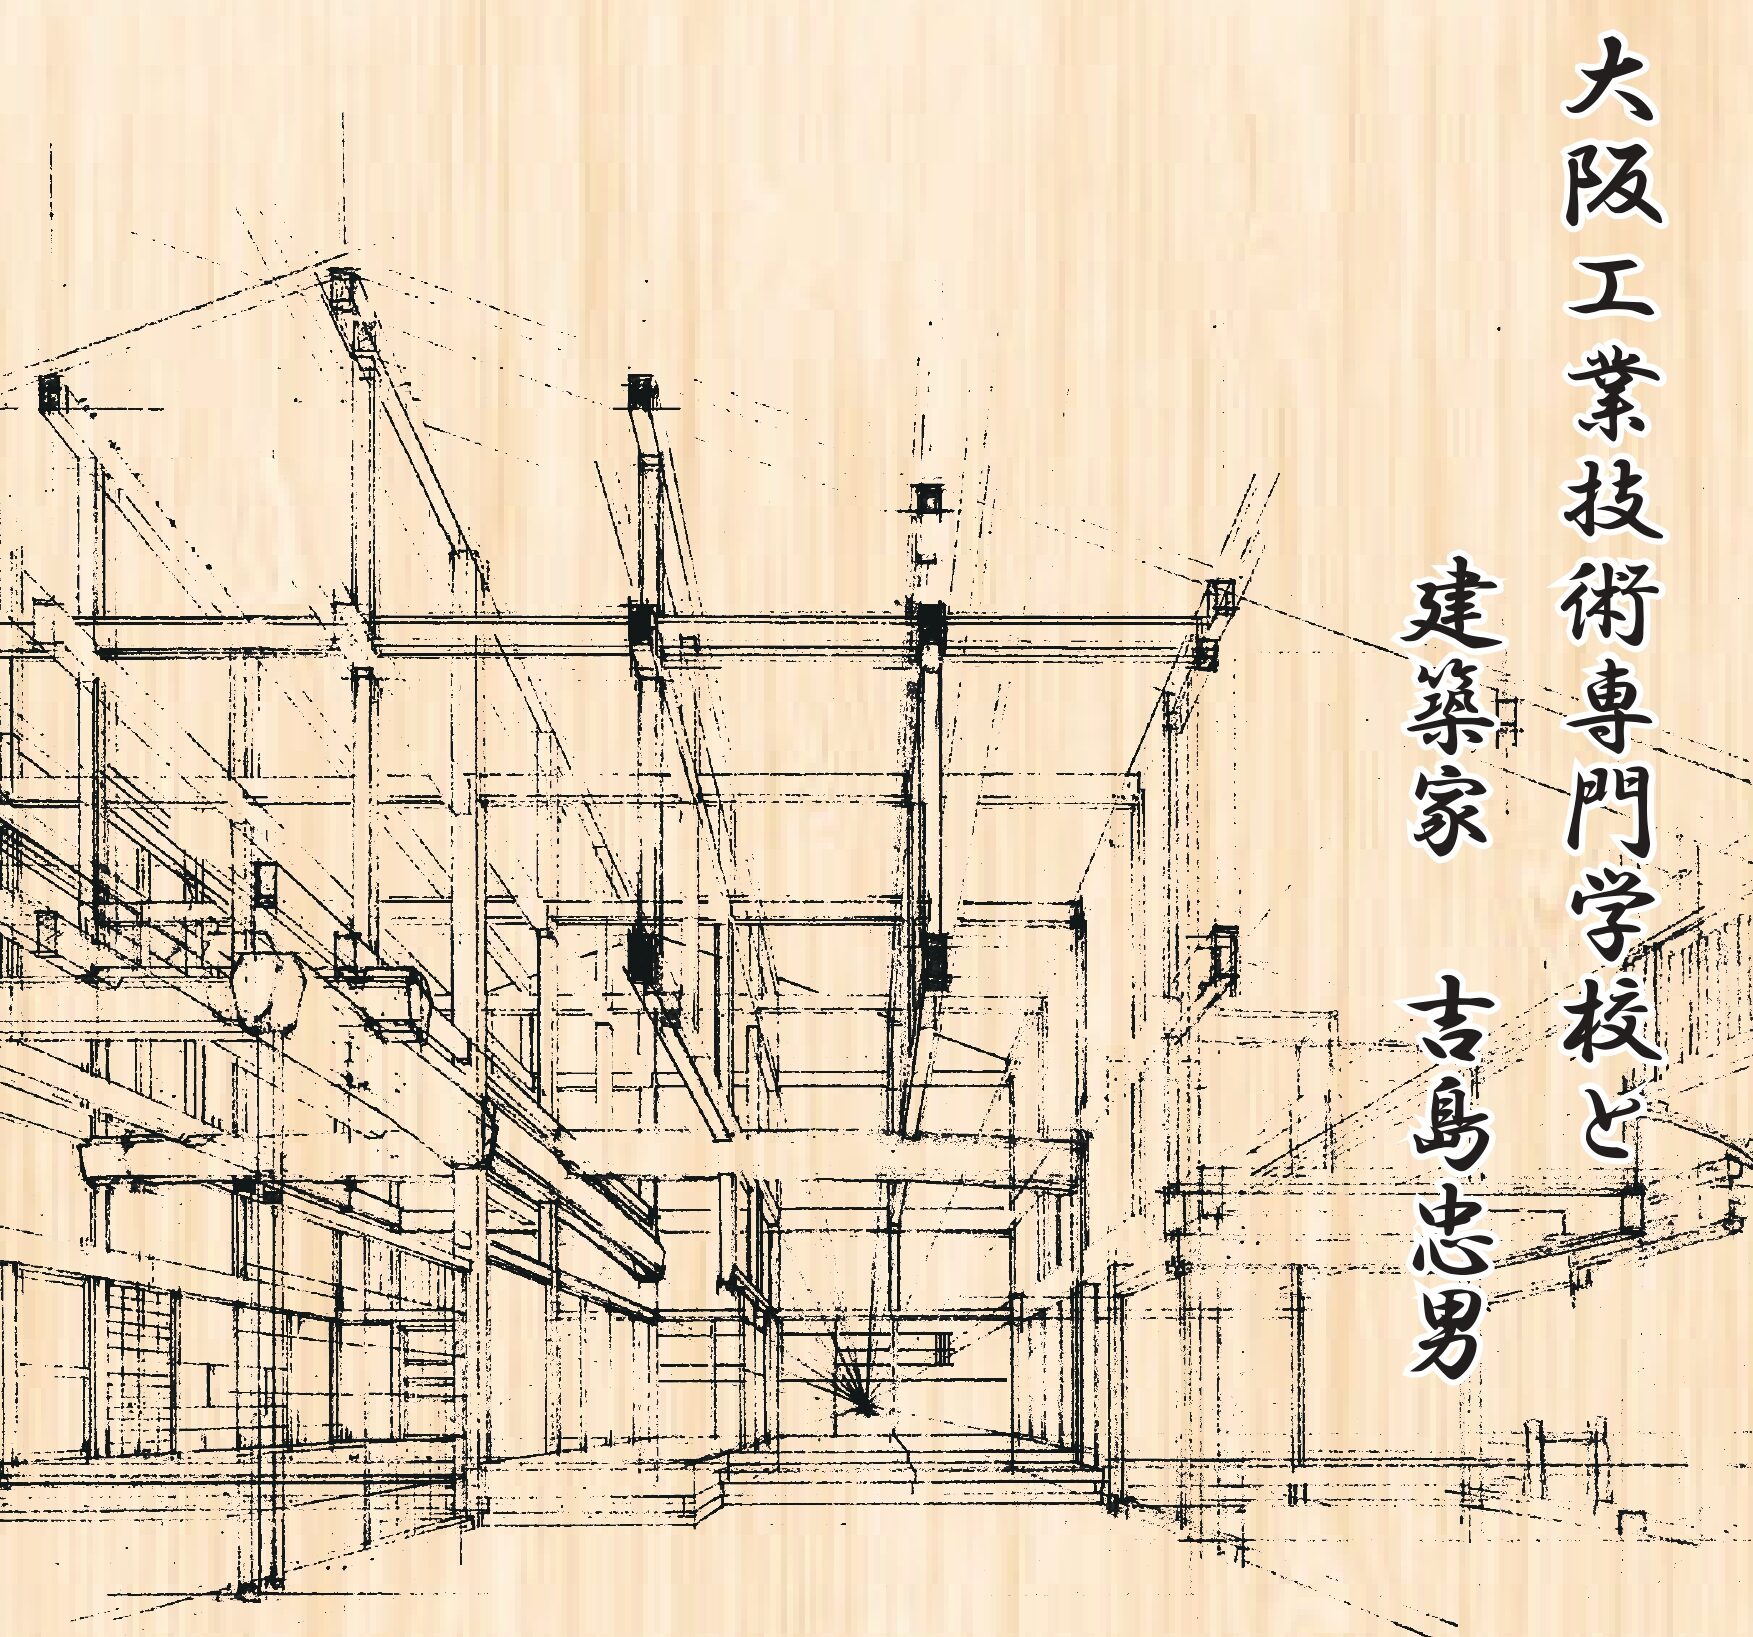 大阪工業技術専門学校と
建築家　吉島忠男